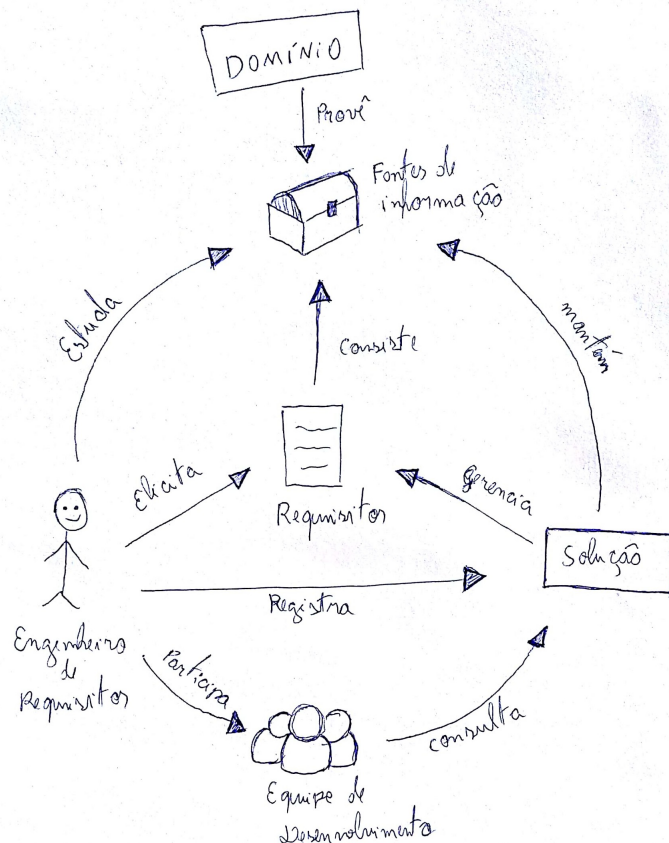 DOMÍNIO
Provê
Fontes de
informação
Estuda
mantém
Consiste
Elicita
gerencia
Requisitos
Solução
Registra
Engenheiro
de
Requisitos
Participa
consulta
Equipe de
Desenvolvimento